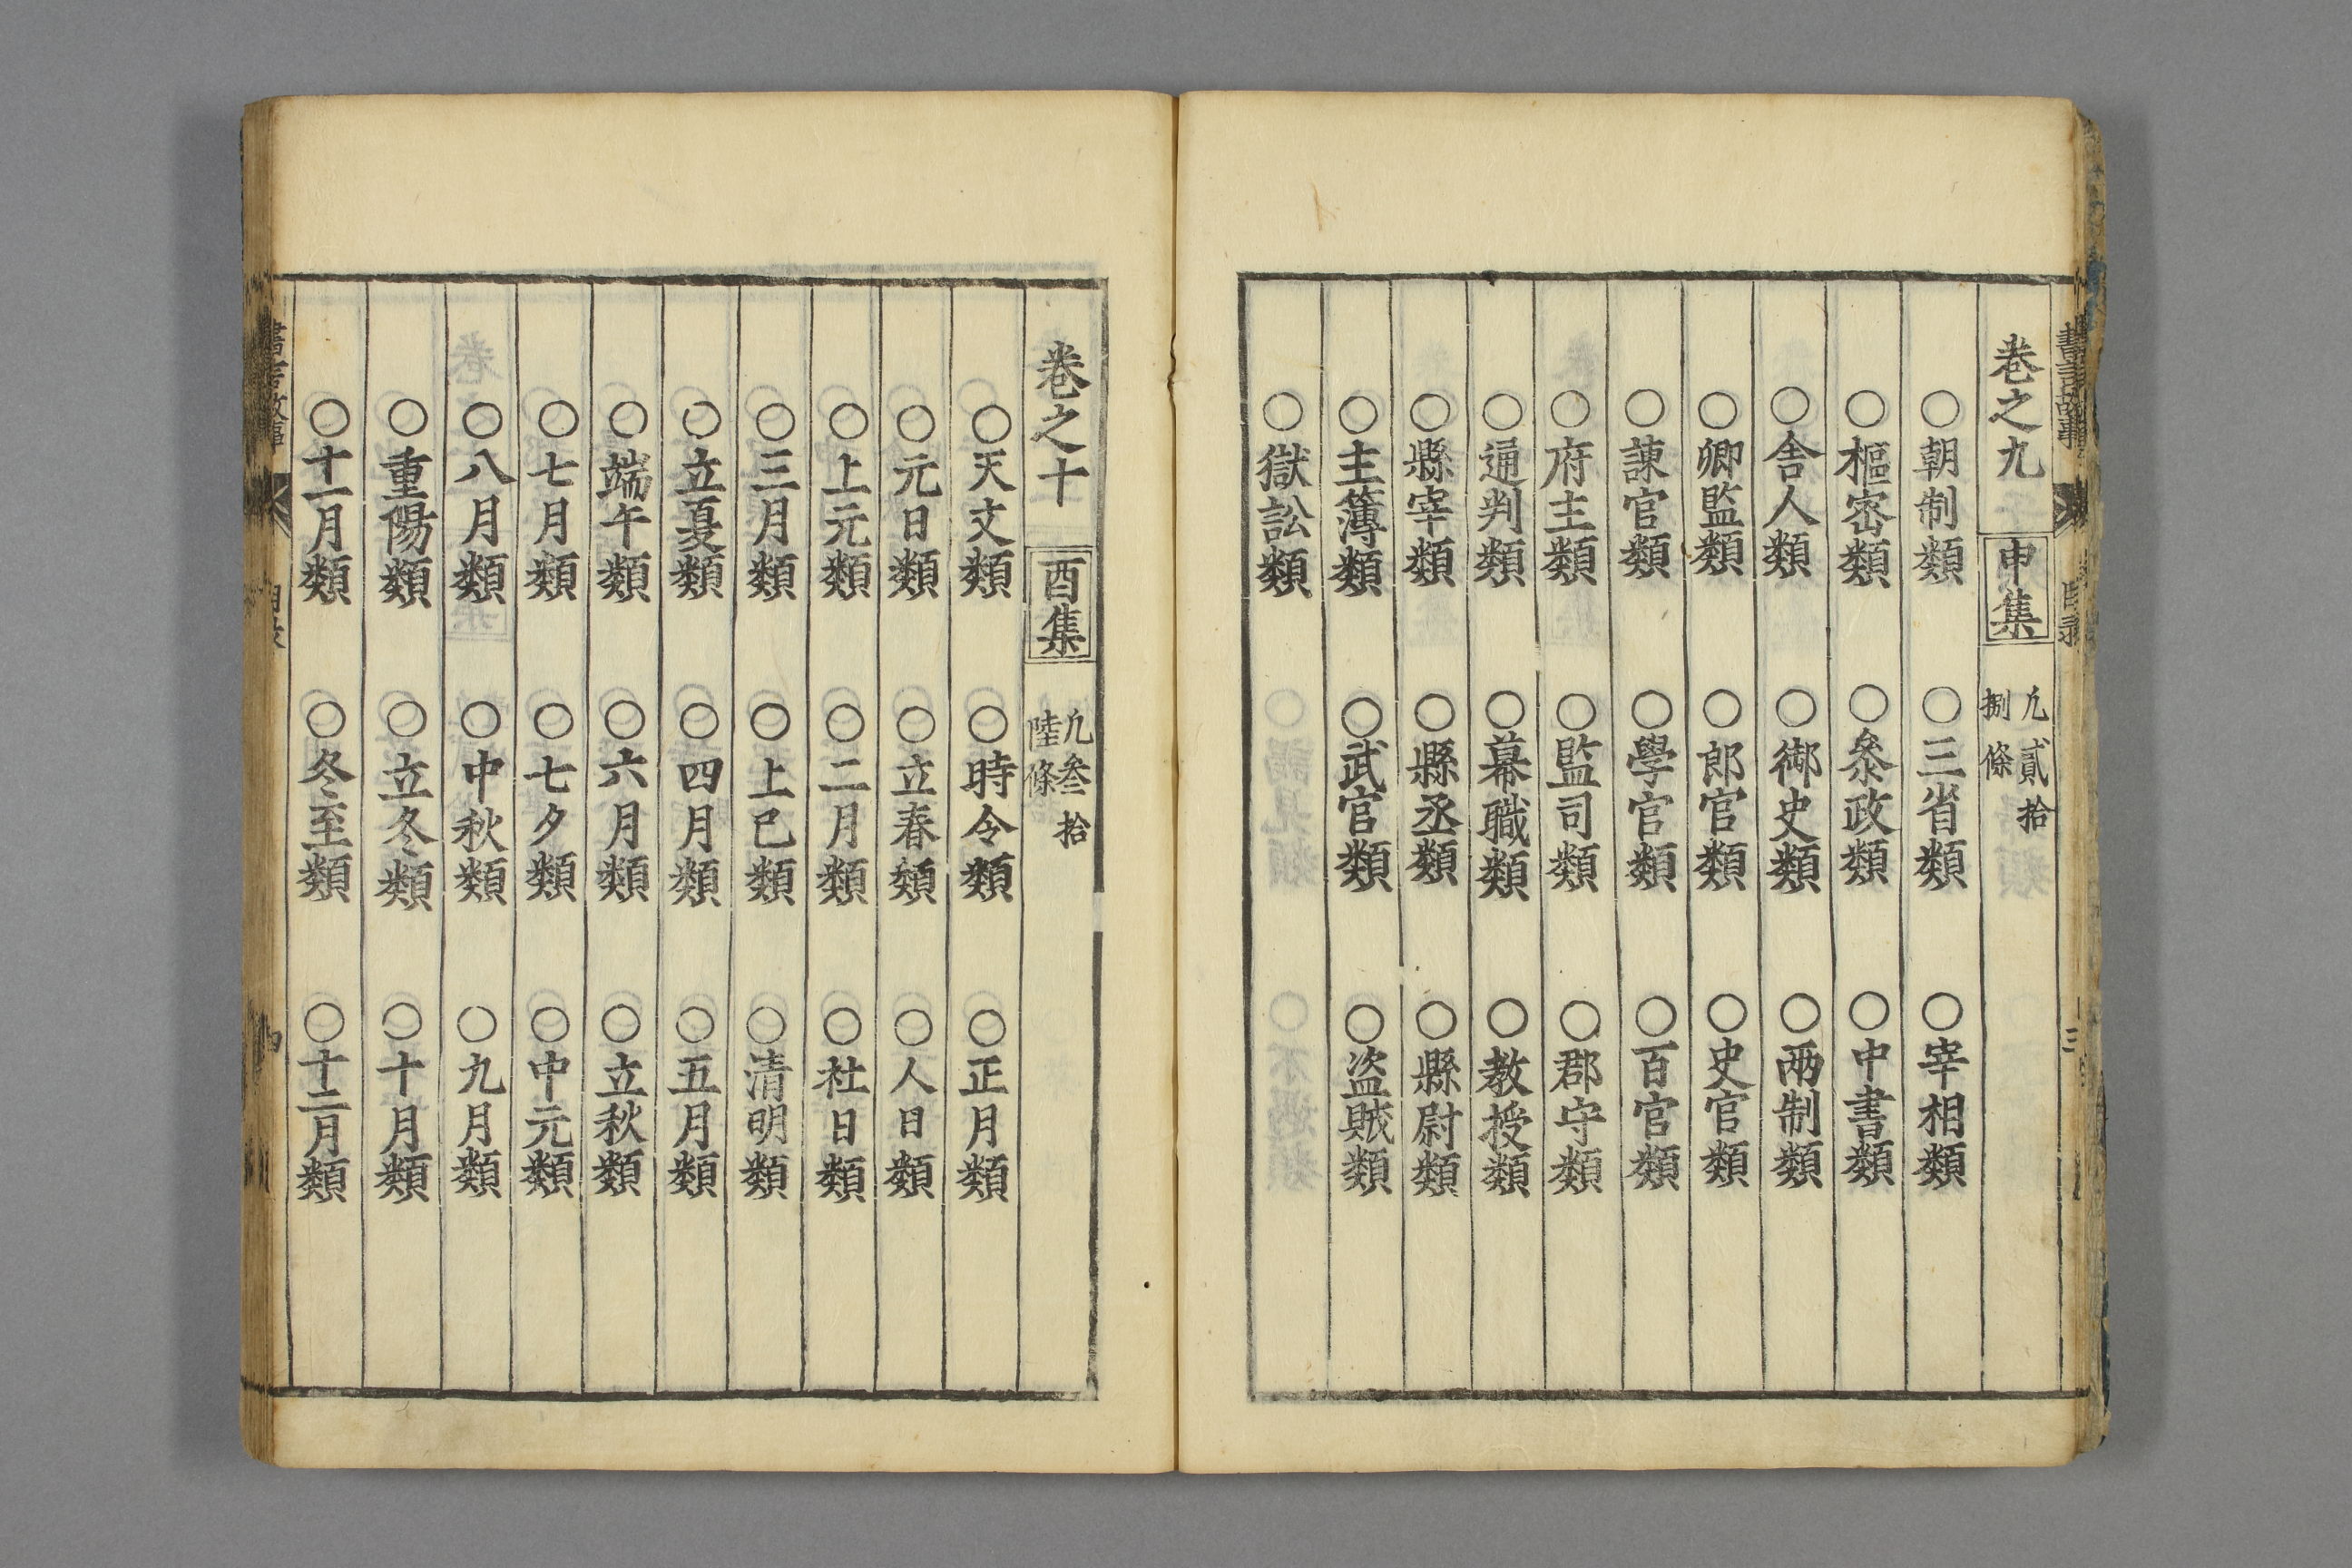 卷之九 申集 凡貳拾捌條
○朝制類 ○三省類 ○宰相類
○樞密類 ○叅政類 ○中書類
○舎人類 ○御史類 ○兩制類
○卿監類 ○郎官類 ○史官類
○諫官類 ○學官類 ○百官類
○府主類 ○監司類 ○郡守類
○通判類 ○幕職類 ○教授類
○縣宰類 ○縣丞類 ○縣尉類
○主簿類 ○武官類 ○盗賊類
○獄訟類
卷之十 酉集 凡叁拾陸條
○天文類 ○時令類 ○正月類
○元日類 ○立春類 ○人日類
○上元類 ○二月類 ○社日類
○三月類 ○上巳類 ○清明類
○立夏類 ○四月類 ○五月類
○端午類 ○六月類 ○立秋類
○七月類 ○七夕類 ○中元類
○八月類 ○中秋類 ○九月類
○重陽類 ○立冬類 ○十月類
○十一月類 ○冬至類 ○十二月類